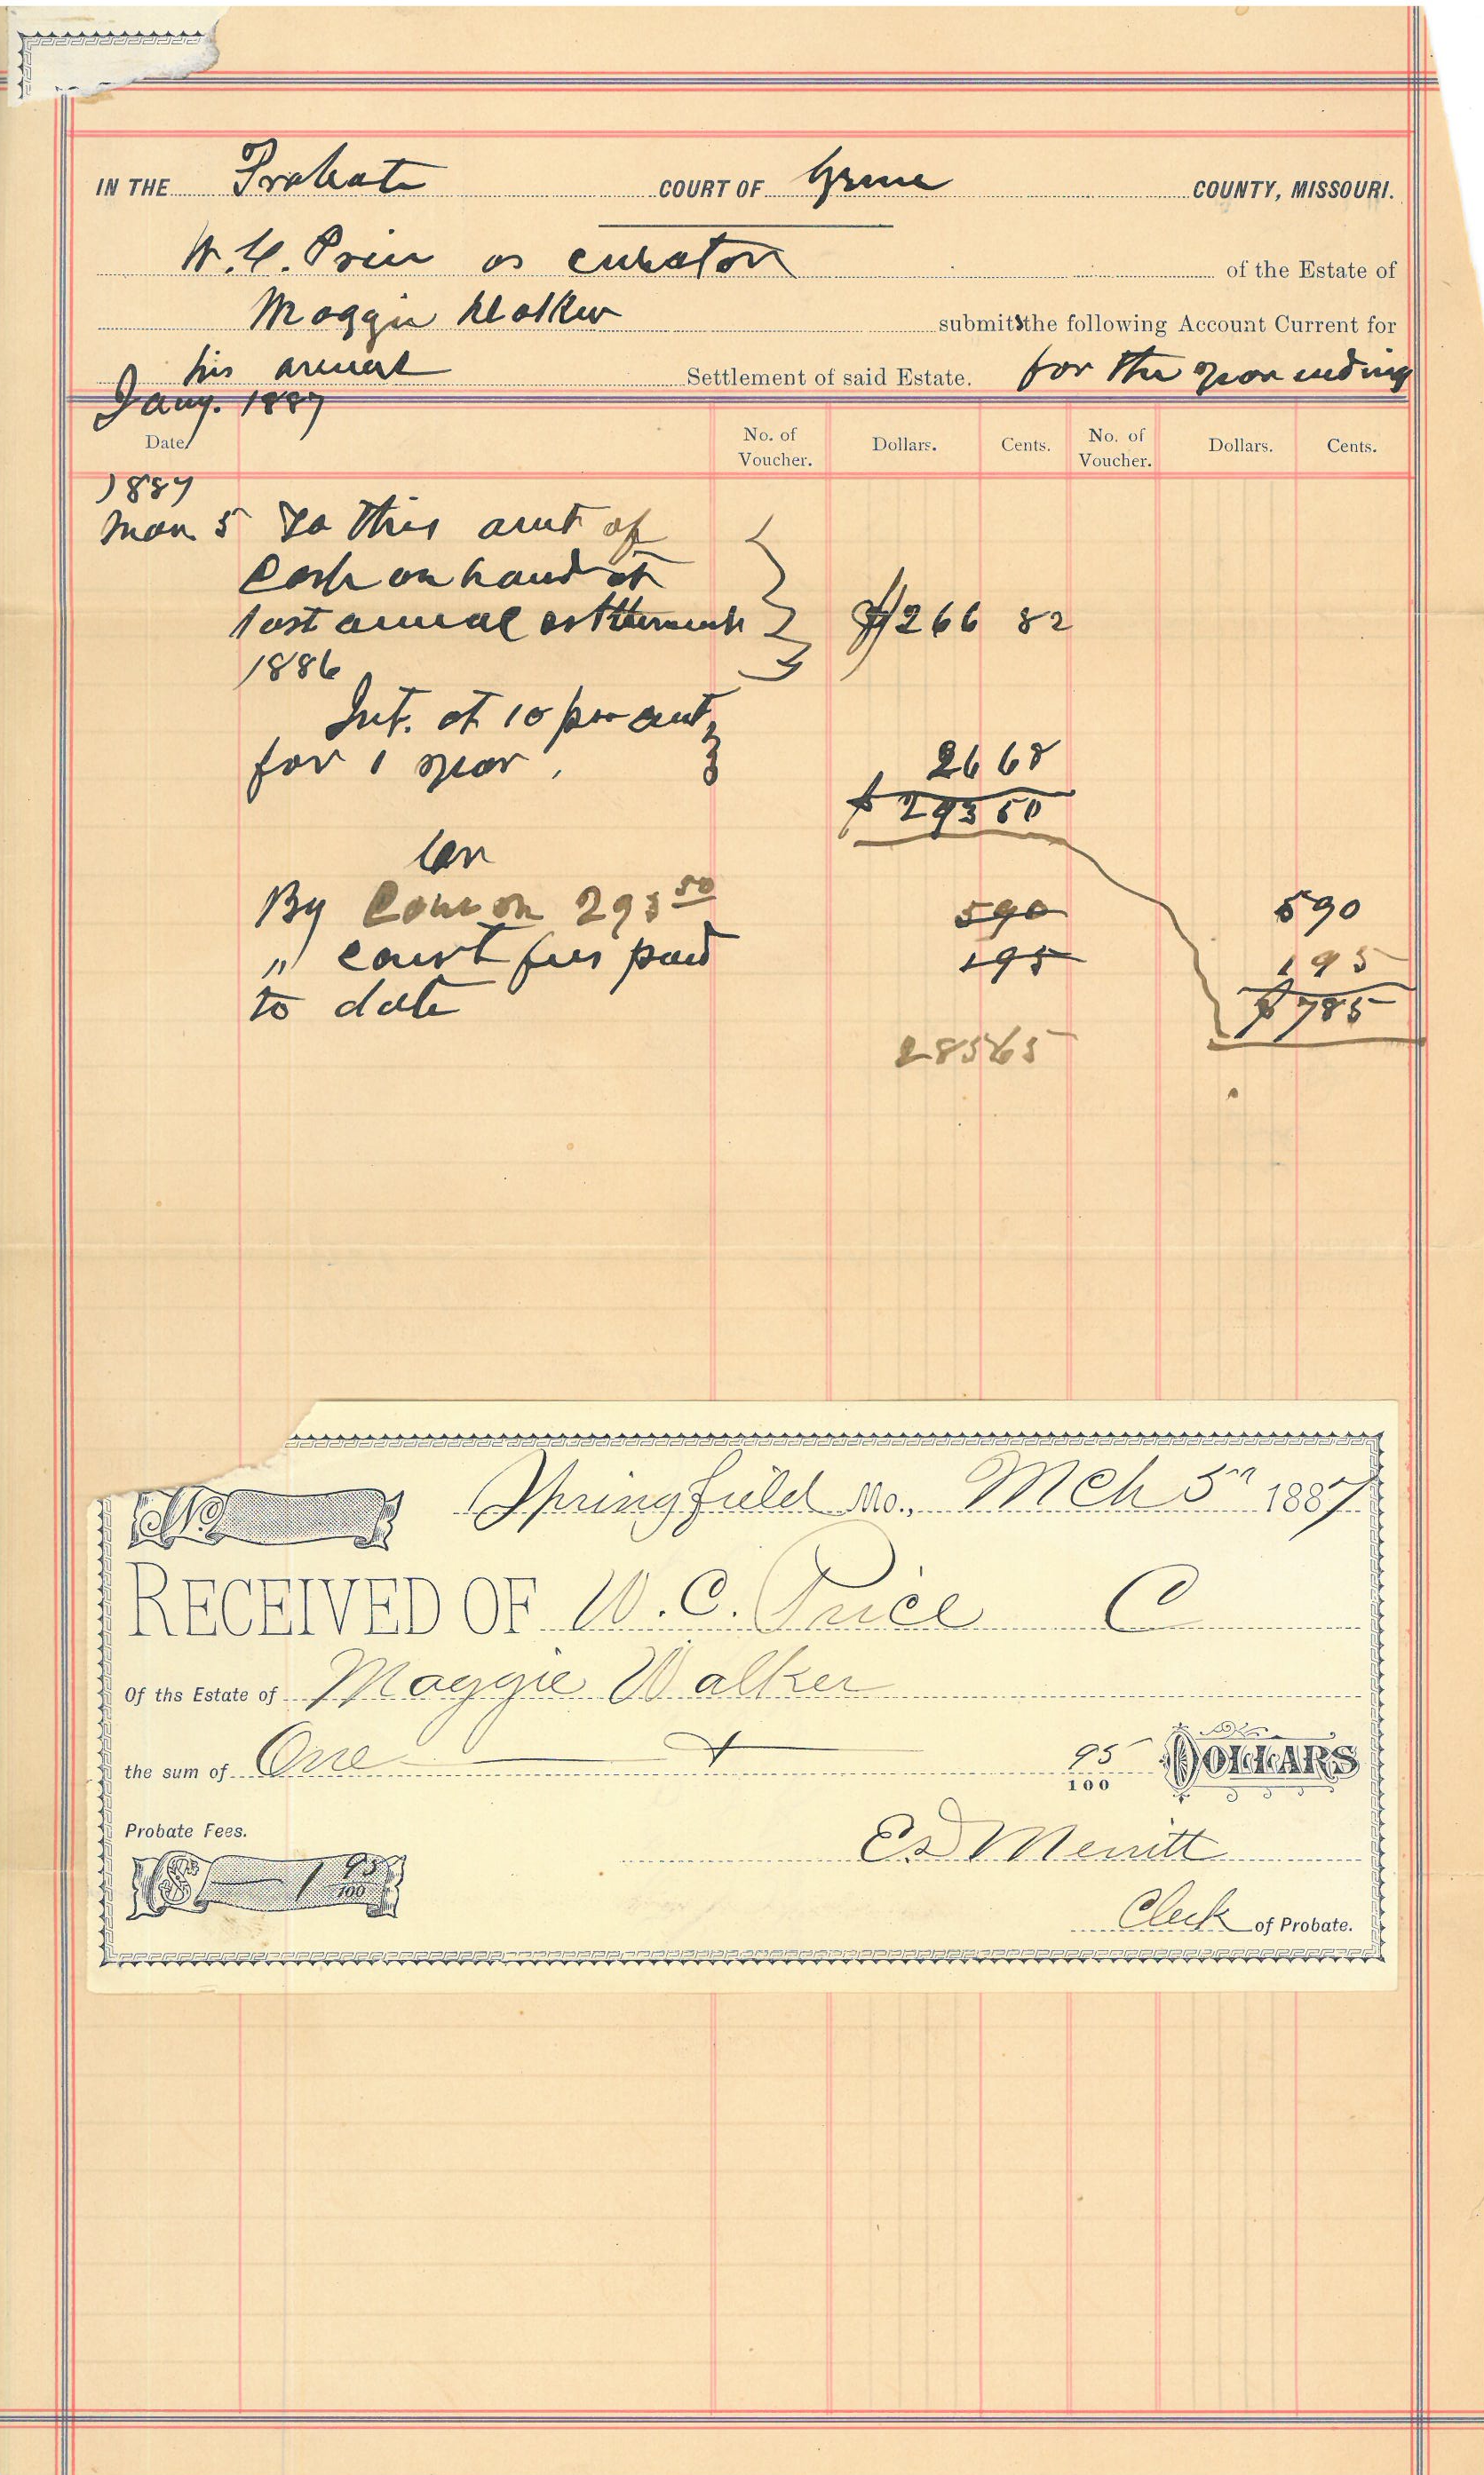 IN THE Probate COURT OF Greene COUNTY, MISSOURI.
W. C. Price as curator of the Estate of
Maggie Walker submits the following Account Current for
his annual Settlement of said Estate. for the year ending
Jany. 1887
Date. No. of Voucher. Dollars. Cents. No. of Voucher. Dollars. Cents.
1887
Mar 5 To this amt of
Cash on hand at
last annual settlement $266 82
1886
Int. at 10 per cent
for 1 year, 26 68
$ 293 50
Cr
By Com on 293 50 5 90 5 90
" court fees paid 1 95 1 95
to date $ 7 85
285 65
Springfield Mo., Mch 5th 1887
No
RECEIVED OF W. C. Price C
Of ths Estate of Maggie Walker
the sum of One 95/100 DOLLARS
Probate Fees.
Ed Merritt
$ 1 95/100
Clerk of Probate.